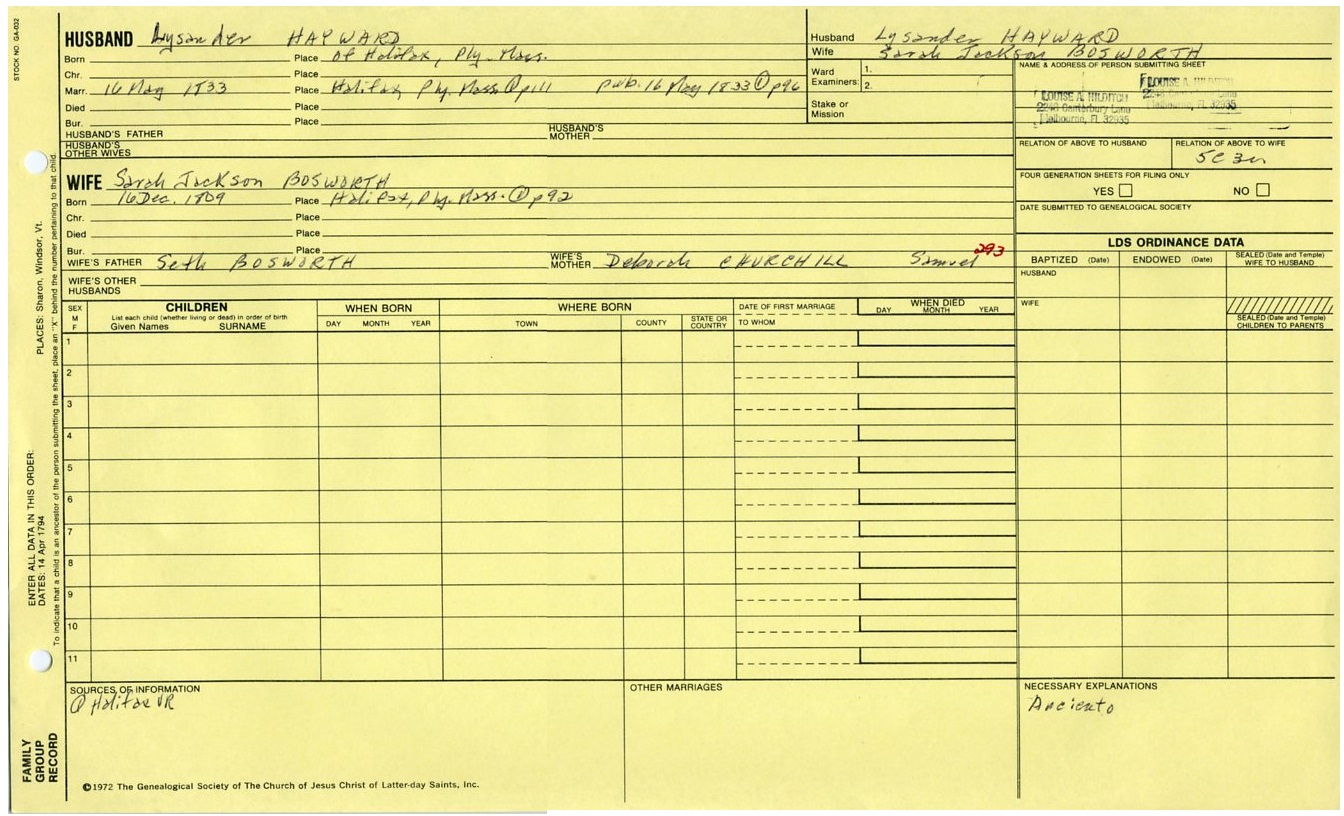 STOCK NO. GA-032
HUSBAND Lysander HAYWARD
Born Place of Halifax, Ply. Mass.
Chr. Place
Marr. 16 May 1833 Place Halifax, Ply. Mass. ① p11 pub. 16 May 1833 ① p96
Died Place
Bur. Place
HUSBAND'S FATHER HUSBAND'S MOTHER
HUSBAND'S OTHER WIVES
Husband Lysander HAYWARD
Wife Sarah Jackson BOSWORTH
Ward Examiners: 1.
2.
Stake or Mission
NAME & ADDRESS OF PERSON SUBMITTING SHEET
LOUISE A. HILDITCH
2248 Canterbury Lane
Melbourne, FL 32935
LOUISE A. HILDITCH
Melbourne, FL 32935
RELATION OF ABOVE TO HUSBAND
RELATION OF ABOVE TO WIFE
5C 3R
FOUR GENERATION SHEETS FOR FILING ONLY
YES NO
DATE SUBMITTED TO GENEALOGICAL SOCIETY
WIFE Sarah Jackson BOSWORTH
Born 16 Dec. 1809 Place Halifax, Ply. Mass. ① p92
Chr. Place
Died Place
Bur. Place
WIFE'S FATHER Seth BOSWORTH WIFE'S MOTHER Deborah CHURCHILL Samuel 293
WIFE'S OTHER HUSBANDS
LDS ORDINANCE DATA
BAPTIZED (Date) ENDOWED (Date) SEALED (Date and Temple) WIFE TO HUSBAND
HUSBAND
WIFE
SEALED (Date and Temple) CHILDREN TO PARENTS
SEX
M
F
CHILDREN
List each child (whether living or dead) in order of birth
Given Names SURNAME
WHEN BORN
DAY MONTH YEAR
WHERE BORN
TOWN COUNTY STATE OR COUNTRY
DATE OF FIRST MARRIAGE
TO WHOM
WHEN DIED
DAY MONTH YEAR
1
2
3
4
5
6
7
8
9
10
11
SOURCES OF INFORMATION
① Halifax VR
OTHER MARRIAGES
NECESSARY EXPLANATIONS
©1972 The Genealogical Society of The Church of Jesus Christ of Latter-day Saints, Inc.
FAMILY GROUP RECORD
ENTER ALL DATA IN THIS ORDER:
DATES: 14 Apr 1794 PLACES: Sharon, Windsor, Vt.
To indicate that a child is an ancestor of the person submitting the sheet, place an "X" behind the number pertaining to that child.